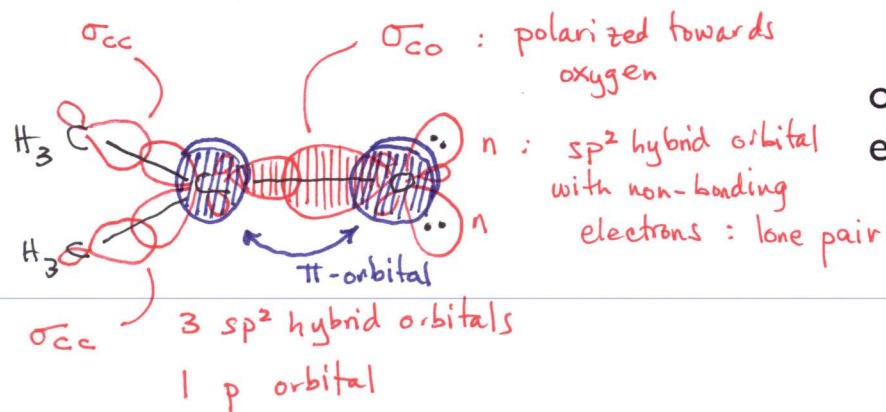 σcc
σco : polarized towards
oxygen
H₃C
C
O
n : sp² hybrid orbital
with non-bonding
electrons : lone pair
n
H₃C
π-orbital
σcc
3 sp² hybrid orbitals
1 p orbital